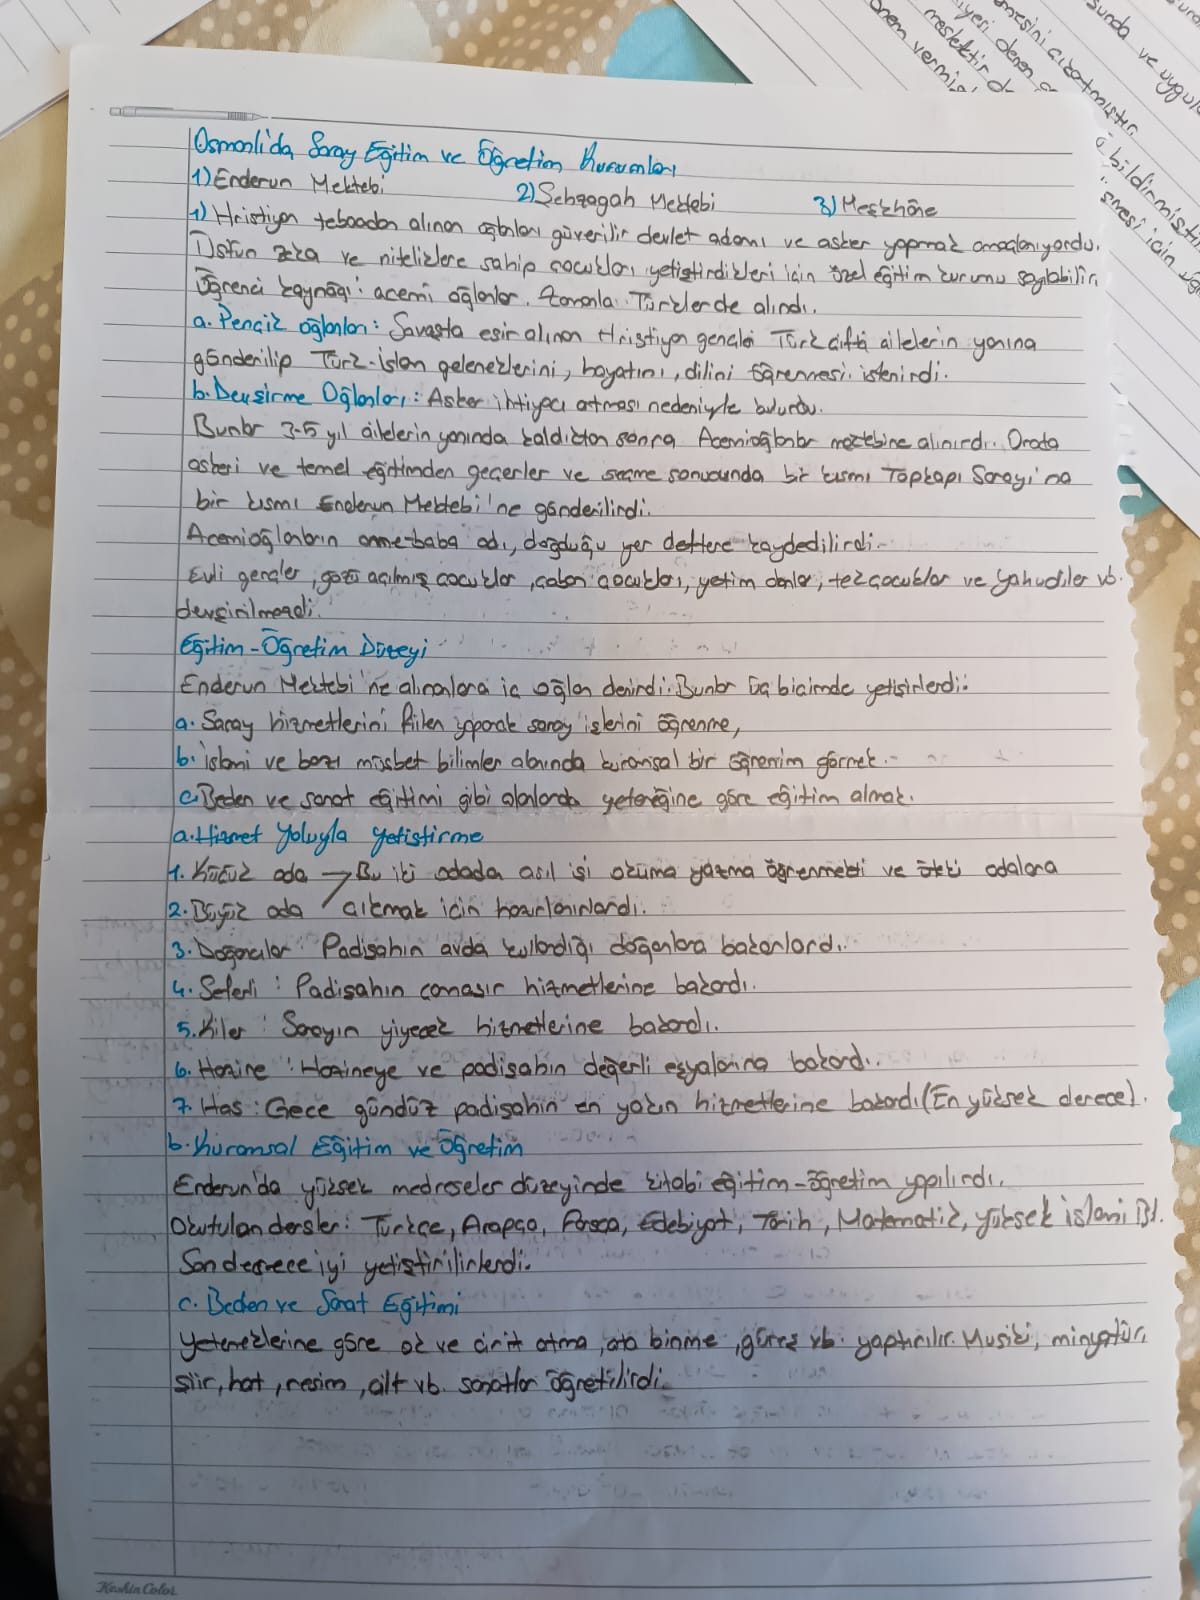 Osmanlı'da Saray Eğitim ve Öğretim Kurumları
1) Enderun Mektebi 2) Şehzagah Mektebi 3) Meşkhane
1) Hristiyan tebaadan alınan oğlanları güvenilir devlet adamı ve asker yapmak amaçlanıyordu.
Üstün zeka ve niteliklere sahip çocukları yetiştirdikleri için özel eğitim kurumu sayılabilir.
Öğrenci kaynağı: acemi oğlanlar. Zamanla Türklerde alındı.
a. Pençik oğlanları: Savaşta esir alınan Hristiyan gençleri Türk çiftçi ailelerin yanına
gönderilip Türk-İslam geleneklerini, hayatını, dilini öğrenmesi istenirdi.
b. Devşirme Oğlanları: Asker ihtiyacı artması nedeniyle bulurdu.
Bunlar 3-5 yıl ailelerin yanında kaldıktan sonra Acemioğlanlar mektebine alınırdı. Orada
askeri ve temel eğitimden geçerler ve seçme sonucunda bir kısmı Topkapı Sarayı'na
bir kısmı Enderun Mektebi'ne gönderilirdi.
Acemioğlanların anne-baba adı, doğduğu yer deftere kaydedilirdi.
Evli gençler, gözü açılmış çocuklar, çoban çocukları, yetim olanlar, tek çocuklar ve Yahudiler vb.
devşirilmezdi.
Eğitim-Öğretim Düzeyi
Enderun Mektebi'ne alınanlara iç oğlan denirdi. Bunlar üç biçimde yetişirlerdi:
a. Saray hizmetlerini fiilen yaparak saray işlerini öğrenme,
b. İslami ve bazı müsbet bilimler alanında kuramsal bir öğrenim görmek.
c. Beden ve sanat eğitimi gibi alanlarda yeteneğine göre eğitim almak.
a. Hizmet Yoluyla Yetiştirme
1. Küçük oda → Bu iki odada asıl işi okuma yazma öğrenmekti ve öteki odalara
2. Büyük oda / çıkmak için hazırlanırlardı.
3. Doğancılar: Padişahın avda kullandığı doğanlara bakarlardı.
4. Seferli: Padişahın çamaşır hizmetlerine bakardı.
5. Kiler: Sarayın yiyecek hizmetlerine bakardı.
6. Hazine: Hazineye ve padişahın değerli eşyalarına bakardı.
7. Has: Gece gündüz padişahın en yakın hizmetlerine bakardı (En yüksek derece).
b. Kuramsal Eğitim ve Öğretim
Enderun'da yüksek medreseler düzeyinde kitabi eğitim-öğretim yapılırdı.
Okutulan dersler: Türkçe, Arapça, Farsça, Edebiyat, Tarih, Matematik, yüksek İslami Bl.
Son derece iyi yetiştirilirlerdi.
c. Beden ve Sanat Eğitimi
Yeteneklerine göre ok ve cirit atma, ata binme, güreş vb. yaptırılır. Musiki, minyatür,
şiir, hat, resim, cilt vb. sanatlar öğretilirdi.
Keskin Color
sunda ve uygul
mesini azaltmıştır.
iyeri denen
meslektir
önem vermiş
bildirmiştir
için